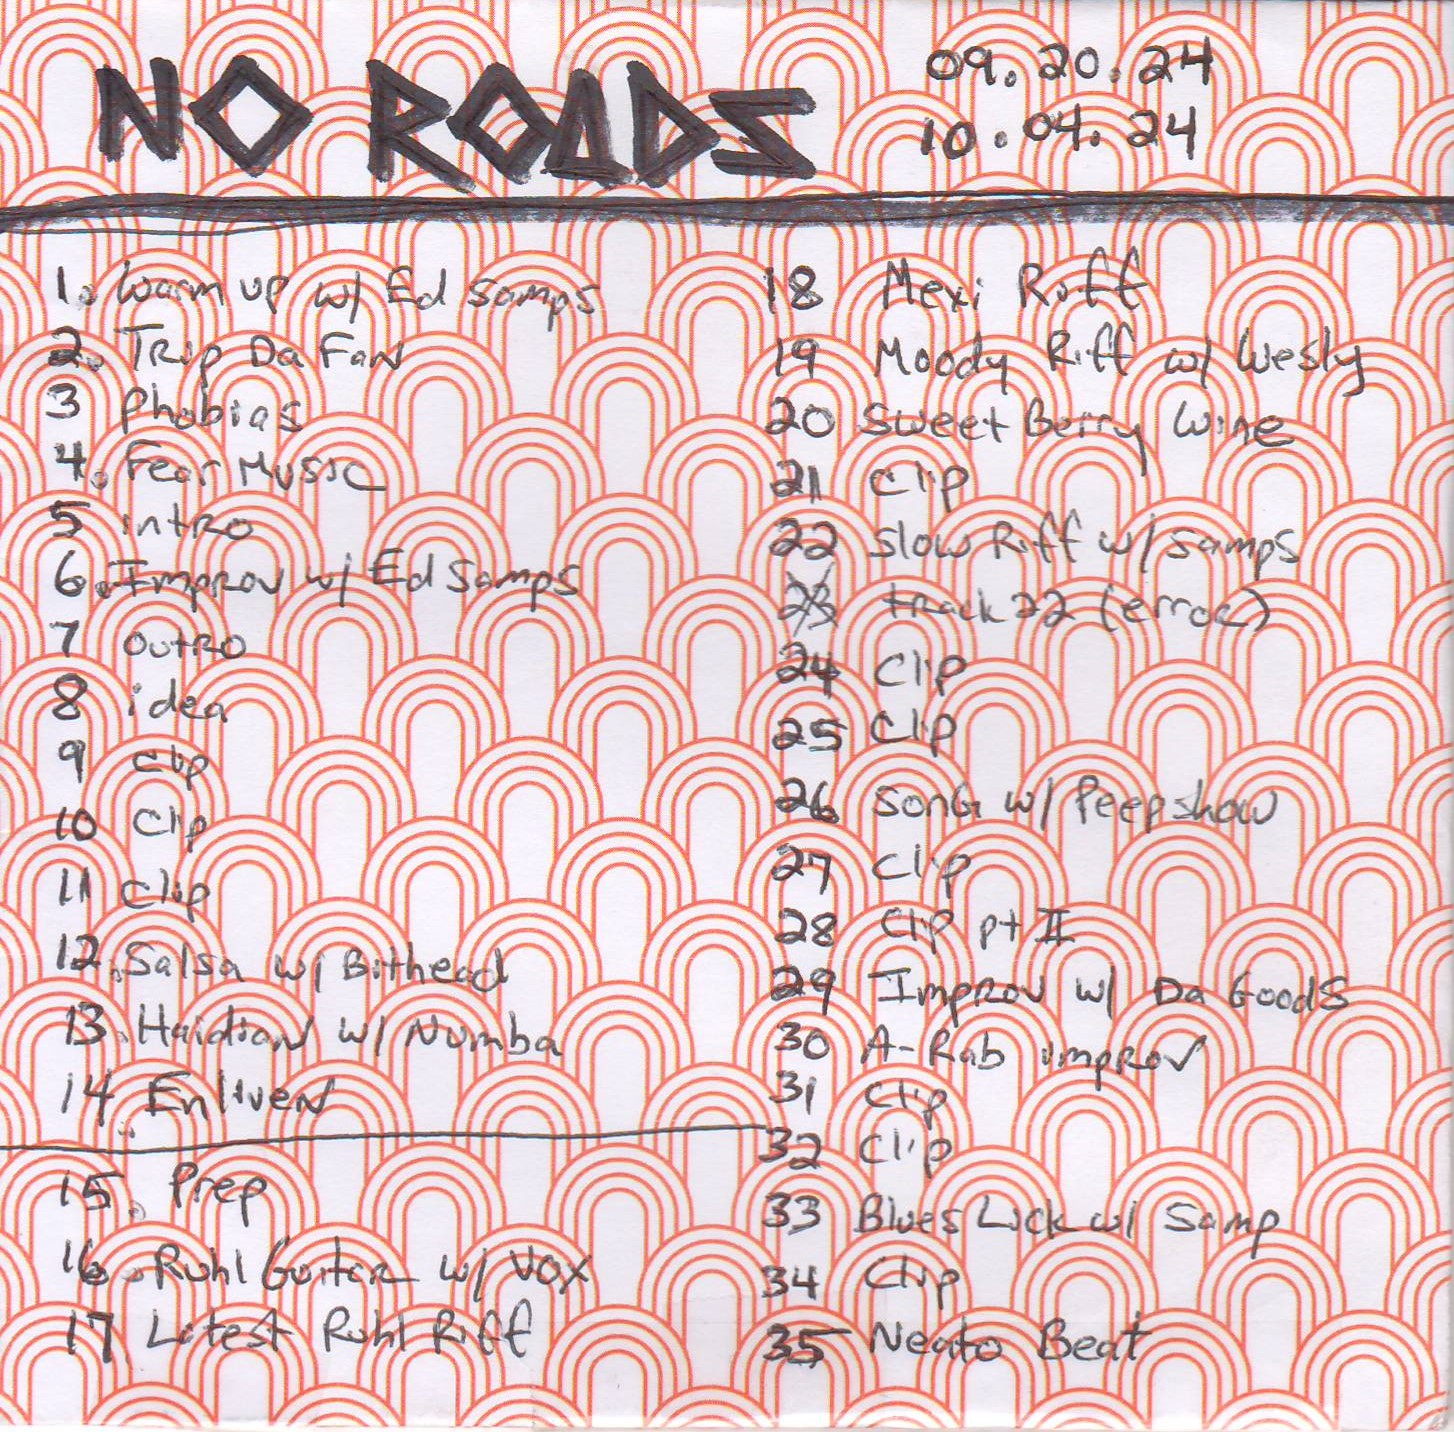 NO ROADS
09.20.24
10.04.24
1. Warm up w/ Ed samps
2. Trip Da Fan
3 phobias
4. Fear Music
5 intro
6. Improv w/ Ed samps
7 outro
8 idea
9 clip
10 clip
11 clip
12. Salsa w/ Bithead
13. Haidian w/ Numba
14. Enliven
15. Prep
16. Ruhl Guitar w/ VOX
17 Latest Ruhl Riff
18 Mexi Riff
19 Moody Riff w/ Wesly
20 Sweet Berry Wine
21 clip
22 slow Riff w/ samps
23 track 22 (error)
24 clip
25 clip
26 song w/ Peepshow
27 clip
28 clip pt II
29 Improv w/ Da Goods
30 A-Rab improv
31 clip
32 clip
33 Blues Lick w/ samp
34 clip
35 Neato Beat